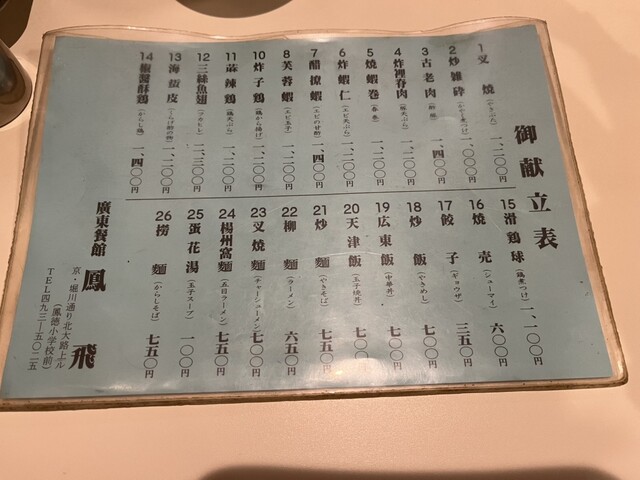 御献立表
1 叉焼 (やきぶた) 一、二〇〇円
2 炒雑砕 一、〇〇〇円
3 古老肉 (酢豚) 一、四〇〇円
4 炸裡脊肉 (豚天ぷら) 一、二〇〇円
5 焼蝦巻 (春巻) 一、二〇〇円
6 炸蝦仁 (エビ天ぷら) 一、二〇〇円
7 醋撩蝦 (エビの甘酢) 一、四〇〇円
8 芙蓉蝦 (エビ玉子) 一、二〇〇円
10 炸子鶏 (鶏から揚げ) 一、二〇〇円
11 蔴辣鶏 (鶏天ぷら) 一、二〇〇円
12 三絲魚翅 (フカヒレ) 二、三〇〇円
13 海蜇皮 (くらげ酢の物) 一、二〇〇円
14 椒醤酥鶏 (からし鶏) 一、四〇〇円
15 滑鶏球 (鶏煮つけ) 一、一〇〇円
16 焼売 (シューマイ) 六〇〇円
17 餃子 (ギョウザ) 三五〇円
18 炒飯 (やきめし) 七〇〇円
19 広東飯 (中華丼) 七〇〇円
20 天津飯 (玉子焼丼) 七〇〇円
21 炒麺 (やきそば) 七五〇円
22 柳麺 (ラーメン) 六五〇円
23 叉焼麺 (チャーシューメン) 七〇〇円
24 楊州窩麺 (五目ラーメン) 七五〇円
25 蛋花湯 (玉子スープ) 一〇〇円
26 撈麺 (からしそば) 七五〇円
廣東餐館 鳳飛
京・堀川通り北大路上ル
(鳳徳小学校前)
TEL四九三―五〇二五